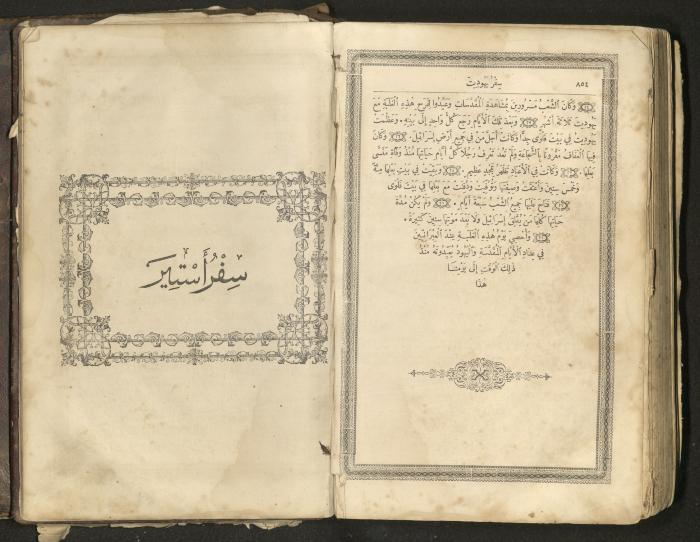 ٨٥٤ سِفْرُ يَهُودِيتَ
وَكَانَ ٱلشَّعْبُ مَسْرُورِينَ بِمُشَاهَدَةِ ٱلْمُقَدَّسَاتِ وَعَيَّدُوا لِفَرَحِ هٰذِهِ ٱلْغَلَبَةِ مَعَ
يَهُودِيتَ ثَلَاثَةَ أَشْهُرٍ . وَبَعْدَ تِلْكَ ٱلْأَيَّامِ رَجَعَ كُلُّ وَاحِدٍ إِلَى بَيْتِهِ . وَعَظُمَتْ
يَهُودِيتُ فِي بَيْتَ فَلْوَى جِدًّا وَكَانَتْ أَجَلَّ مَنْ فِي جَمِيعِ أَرْضِ إِسْرَائِيلَ . وَكَانَ
فِيهَا ٱلْعَفَافُ مَقْرُونًا بِٱلشَّجَاعَةِ وَلَمْ تَعُدْ تَعْرِفُ رَجُلًا كُلَّ أَيَّامِ حَيَاتِهَا مُنْذُ وَفَاةِ مَنَسَّى
بَعْلِهَا . وَكَانَتْ فِي ٱلْأَعْيَادِ تَظْهَرُ بِمَجْدٍ عَظِيمٍ . وَبَقِيَتْ فِي بَيْتِ بَعْلِهَا مِئَةً
وَخَمْسَ سِنِينَ وَأَعْتَقَتْ وَصِيفَتَهَا وَتُوُفِّيَتْ وَدُفِنَتْ مَعَ بَعْلِهَا فِي بَيْتَ فَلْوَى
فَنَاحَ عَلَيْهَا جَمِيعُ ٱلشَّعْبِ سَبْعَةَ أَيَّامٍ . وَلَمْ يَكُنْ مُدَّةَ
حَيَاتِهَا كُلِّهَا مَنْ يُقْلِقُ إِسْرَائِيلَ وَلَا بَعْدَ مَوْتِهَا سِنِينَ كَثِيرَةً .
وَأُحْصِيَ يَوْمُ هٰذِهِ ٱلْغَلَبَةِ عِنْدَ ٱلْعِبْرَانِيِّينَ
فِي عِدَادِ ٱلْأَيَّامِ ٱلْمُقَدَّسَةِ وَٱلْيَهُودُ يُعَيِّدُونَهُ مُنْذُ
ذٰلِكَ ٱلْوَقْتِ إِلَى يَوْمِنَا
هٰذَا
سِفْرُ أَسْتِيرَ